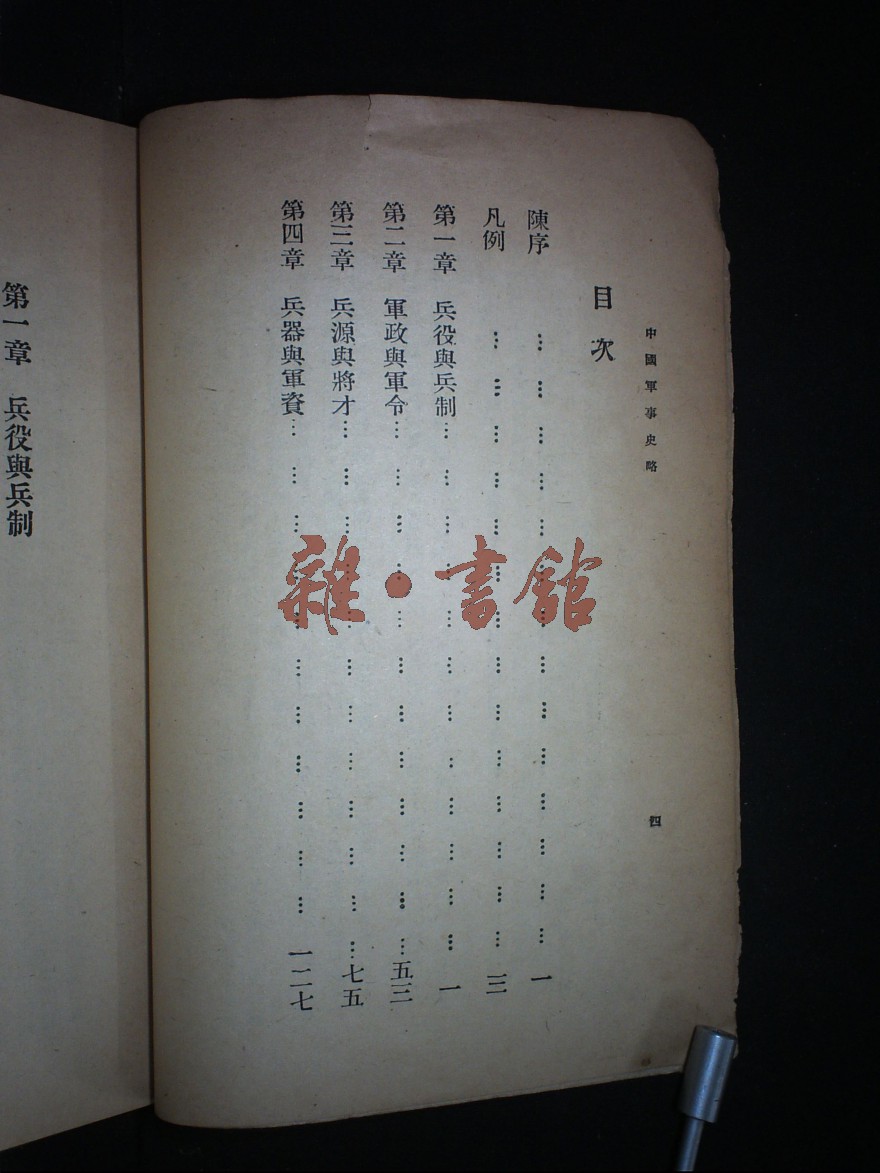 中國軍事史略
四
目次
陳序 … … … … … … … … … … … … … … 一
凡例 … … … … … … … … … … … … … … 三
第一章 兵役與兵制 … … … … … … … … … … … … 一
第二章 軍政與軍令 … … … … … … … … … … … … 五三
第三章 兵源與將才 … … … … … … … … … … … … 七五
第四章 兵器與軍資 … … … … … … … … … … … 一二七
第一章 兵役與兵制
雜·書館